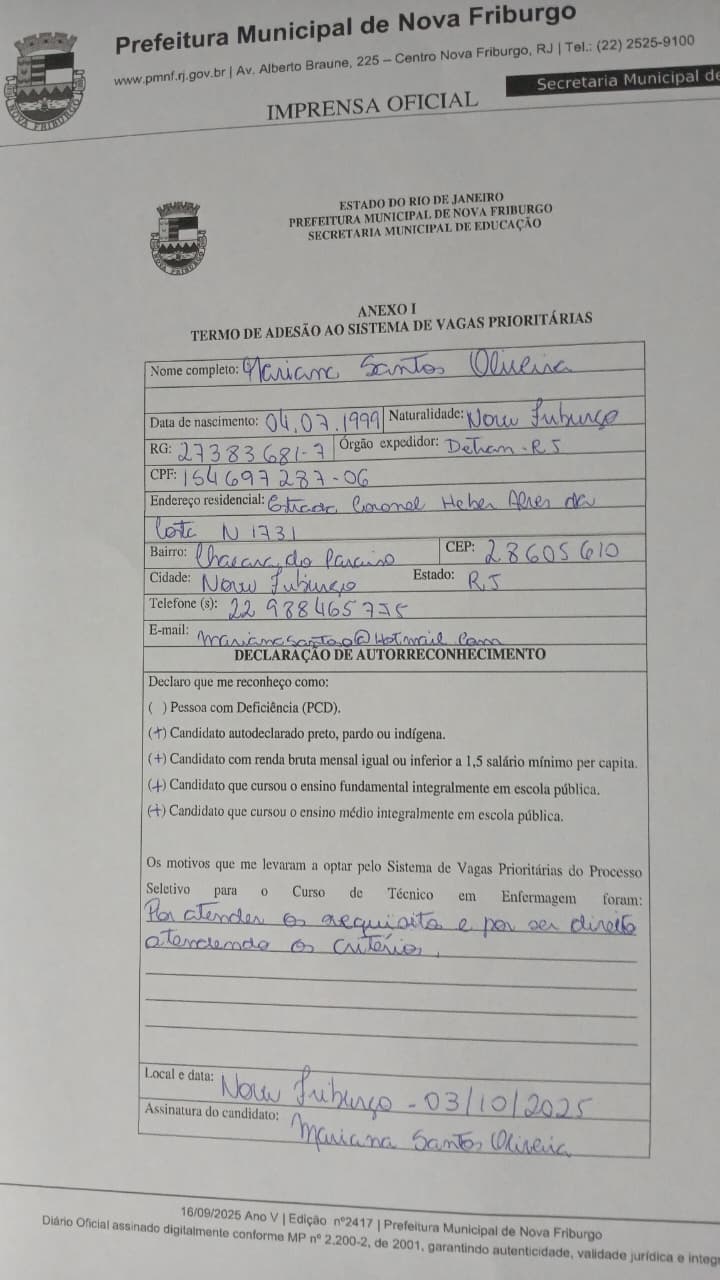 Prefeitura Municipal de Nova Friburgo
www.pmnf.rj.gov.br | Av. Alberto Braune, 225 – Centro Nova Friburgo, RJ | Tel.: (22) 2525-9100
Secretaria Municipal de
IMPRENSA OFICIAL
NOVA FRIBURGO
ESTADO DO RIO DE JANEIRO
PREFEITURA MUNICIPAL DE NOVA FRIBURGO
SECRETARIA MUNICIPAL DE EDUCAÇÃO
NOVA FRIBURGO
ANEXO I
TERMO DE ADESÃO AO SISTEMA DE VAGAS PRIORITÁRIAS
Nome completo: Mariana Santos Oliveira
Data de nascimento: 04.07.1999 Naturalidade: Nova Friburgo
RG: 27383681-7 Órgão expedidor: Detran-RJ
CPF: 154697287-06
Endereço residencial: Estrada Coronel Heber Alves da
Costa N 1731
Bairro: Chacara do Paraiso CEP: 28605610
Cidade: Nova Friburgo Estado: RJ
Telefone (s): 22 988465775
E-mail: marianasantoo@Hotmail.com
DECLARAÇÃO DE AUTORRECONHECIMENTO
Declaro que me reconheço como:
( ) Pessoa com Deficiência (PCD).
(+) Candidato autodeclarado preto, pardo ou indígena.
(+) Candidato com renda bruta mensal igual ou inferior a 1,5 salário mínimo per capita.
(+) Candidato que cursou o ensino fundamental integralmente em escola pública.
(+) Candidato que cursou o ensino médio integralmente em escola pública.
Os motivos que me levaram a optar pelo Sistema de Vagas Prioritárias do Processo
Seletivo para o Curso de Técnico em Enfermagem foram:
Por atender os requisito e por ser direito
atendendo os critérios.
Local e data: Nova Friburgo - 03/10/2025
Assinatura do candidato: Mariana Santos Oliveira
16/09/2025 Ano V | Edição nº2417 | Prefeitura Municipal de Nova Friburgo
Diário Oficial assinado digitalmente conforme MP nº 2.200-2, de 2001, garantindo autenticidade, validade jurídica e integ